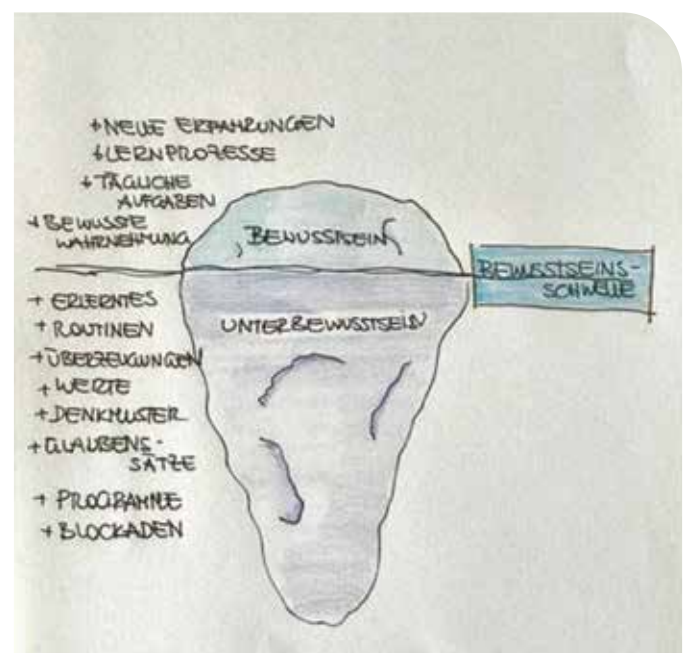 + NEUE ERFAHRUNGEN
+ LERNPROZESSE
+ TÄGLICHE
AUFGABEN
+ BEWUSSTE
WAHRNEHMUNG
BEWUSSTSEIN
BEWUSSTSEINS-
SCHWELLE
+ ERLERNTES
+ ROUTINEN
UNTERBEWUSSTSEIN
+ ÜBERZEUGUNGEN
+ WERTE
+ DENKMUSTER
+ GLAUBENS-
SÄTZE
+ PROGRAMME
+ BLOCKADEN